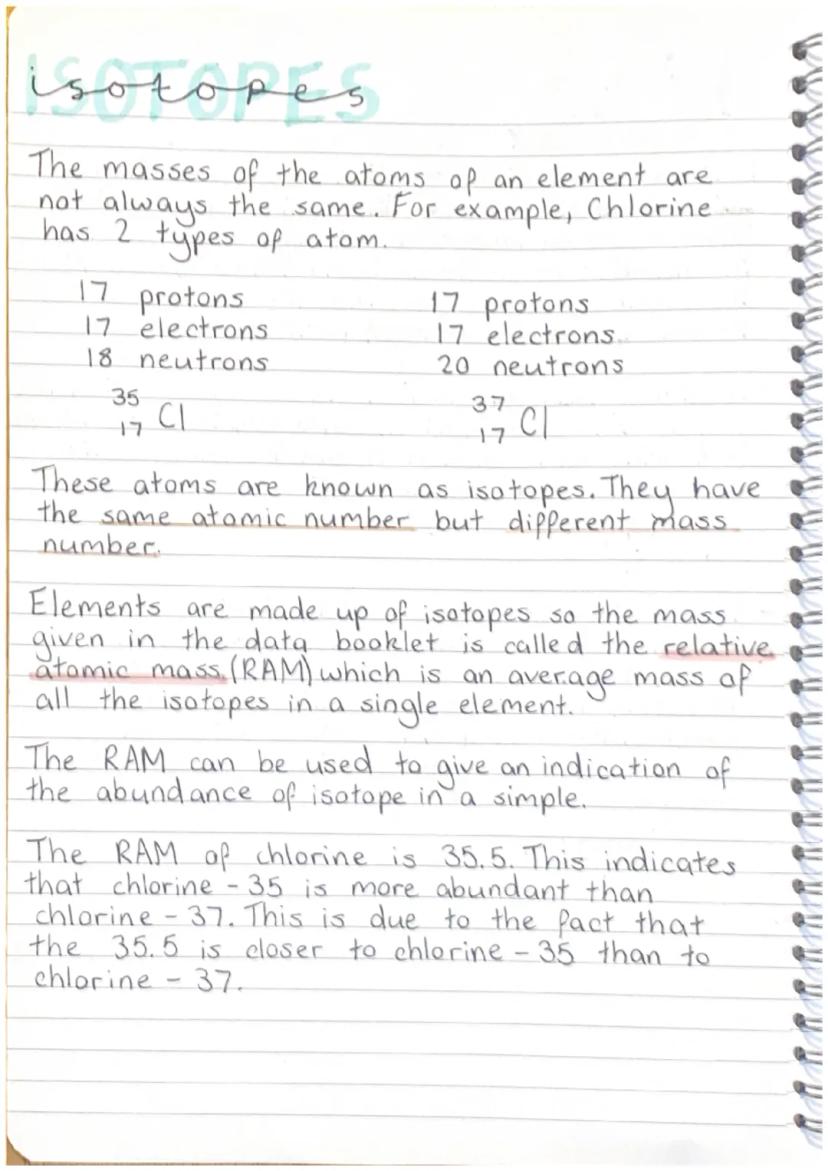 ISOTOPES
isotopes
The masses of the atoms of an element are
not always the same. For example, Chlorine
has 2 types of atom.
17 protons 17 protons
17 electrons 17 electrons
18 neutrons 20 neutrons
35 37
17 Cl 17 Cl
These atoms are known as isotopes. They have
the same atomic number but different mass
number.
Elements are made up of isotopes so the mass
given in the data booklet is called the relative
atomic mass (RAM) which is an average mass of
all the isotopes in a single element.
The RAM can be used to give an indication of
the abundance of isotope in a simple.
The RAM of chlorine is 35.5. This indicates
that chlorine - 35 is more abundant than
chlorine - 37. This is due to the fact that
the 35.5 is closer to chlorine - 35 than to
chlorine - 37.